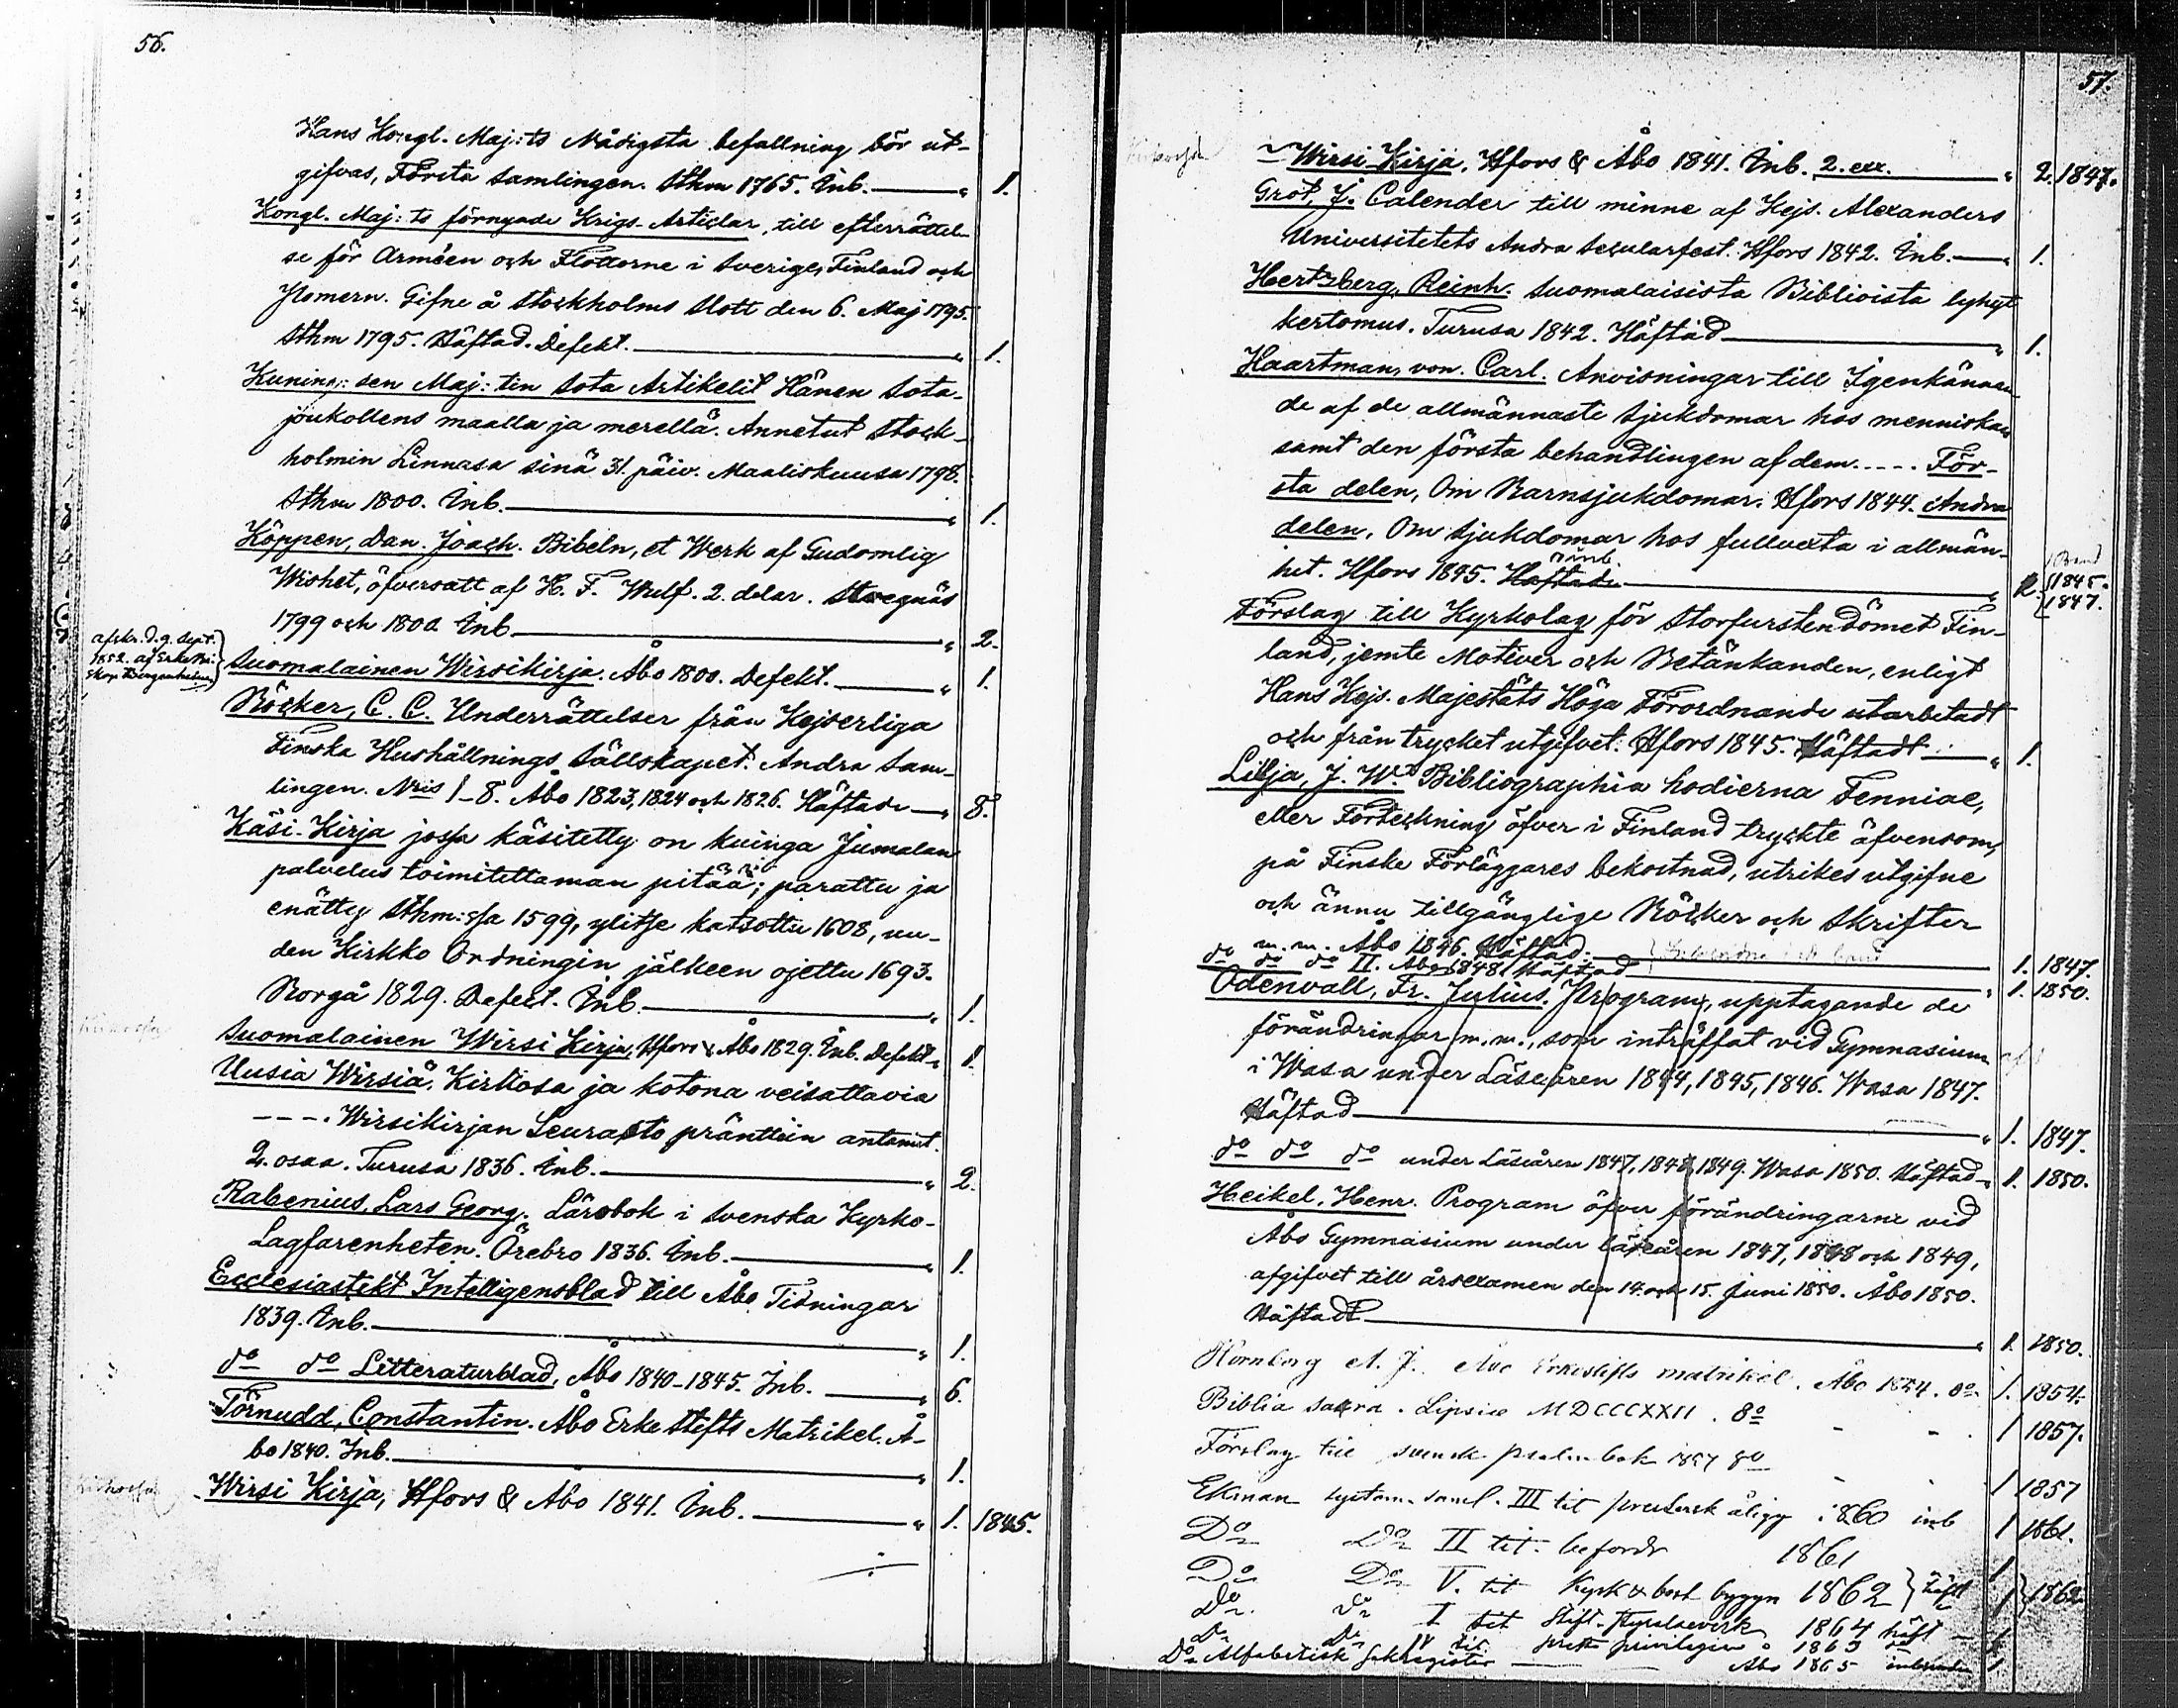 56.
Hans Kongl. Maj:ts Nådigsta befallning bör ut-
gifvas, Första Samlingen. Sthm 1765. Inb. " 1.
Kongl. Maj:ts förnyade Krigs-Articlar, till efterrättel-
se för Arméen och Flottorne i Sverige, Finland och
Pomern. Gifne å Stockholms Slott den 6. Maj 1795.
Sthm 1795. Häftad. Defekt. " 1.
Kuning:sen Maj:tin Sota Artikelit Hänen Sota-
joukollens maalla ja merellä. Annetut Stock-
holmin Linnasa sinä 31. päiv. Maaliskuusa 1798.
Sthm 1800. Inb. " 1.
Köppen, Dan. Joach. Bibeln, et Werk af Gudomlig
Wishet, öfversatt af H. F. Wulf. 2. delar. Stregnäs
1799 och 1800. Inb. " 2.
afskr. d. 9. Sept.
1852. af Erke Bi-
skop Bergenheim
Suomalainen Wirsikirja. Åbo 1800. Defekt. " 1.
Böcker, C. C. Underrättelser från Kejserliga
Finska Hushållnings Sällskapet. Andra Sam-
lingen. Nris 1-8. Åbo 1823, 1824 och 1826. Häftade " 8.
Käsi-Kirja josja käsitetty on kuinga Jumalan
palvelus toimitettaman pitää; parattu ja
enätty Sthm:sja 1599, ylitse katsottu 1608, uu-
den Kirkko Ordningin jälkeen ojettu 1693.
Borgå 1829. Defect. Inb. " 1.
Suomalainen Wirsi Kirja, Hfors & Åbo 1829. Inb. Defekt " 1.
Uusia Wirsiä, Kirkosa ja kotona veisattavia
----. Wirsikirjan Seurasto pränttiin antanut.
2. osaa. Turusa 1836. Inb. " 2.
Rabenius, Lars Georg. Lärobok i Svenska Kyrko-
Lagfarenheten. Örebro 1836. Inb. " 1.
Ecclesiastikt Intelligensblad till Åbo Tidningar
1839. Inb. " 1.
do do Litteraturblad, Åbo 1840-1845. Inb. " 6.
Törnudd, Constantin. Åbo Erke Stifts Matrikel. Å-
bo 1840. Inb. " 1.
Wirsi Kirja, Hfors & Åbo 1841. Inb. " 1. 1845.
57.
Wirsi-Kirja. Hfors & Åbo 1841. Inb. 2. exx. " 2. 1847.
Grot, J. Calender till minne af Kejs. Alexanders
Universitetets Andra Secularfest. Hfors 1842. Inb. " 1.
Hertzberg, Reinh. Suomalaisista Biblioista lyhyt
kertomus. Turusa 1842. Häftad " 1.
Haartman, von. Carl. Anvisningar till Igenkännan-
de af de allmännaste Sjukdomar hos menniskan
samt den första behandlingen af dem ---- För-
sta delen, Om Barnsjukdomar. Hfors 1844. Andra
delen, Om Sjukdomar hos fullvexta i allmän-
het. Hfors 1845. Häftade inb. " 2. 1 Band 1845. 1847.
Förslag till Kyrkolag för Storfurstendömet Fin-
land, jemte Motiver och Betänkanden, enligt
Hans Kejs. Majestäts Höga Förordnande utarbetadt
och från trycket utgifvet. Hfors 1845. Häftadt " 1.
Lilja, J. W. Bibliographia hodierna Fenniae,
eller Förteckning öfver i Finland tryckte äfvensom,
på Finske Förläggares bekostnad, utrikes utgifne
och ännu tillgänglige Böcker och Skrifter
m. m. Åbo 1846. Häftad. 1. 1847.
do do do II. Åbo 1848. Häftad " 1. 1850.
Odenvall, Fr. Julius. Program, upptagande de
förändringar m. m., som inträffat vid Gymnasium
i Wasa under Läseåren 1844, 1845, 1846. Wasa 1847.
Häftad " 1. 1847.
do do do under Läseåren 1847, 1848, 1849. Wasa 1850. Häftad " 1. 1850.
Heikel, Henr. Program öfver förändringarne vid
Åbo Gymnasium under läseåren 1847, 1848 och 1849,
afgifvet till årsexamen den 14. och 15. Juni 1850. Åbo 1850.
Häftadt " 1. 1850.
Hornborg A. J. Åbo Erkestifts matrikel. Åbo 1854. 8o 1. 1854.
Biblia sacra. Lipsiæ MDCCCXXII. 8o 1 1857.
Förslag till svensk psalmbok 1857 8o 1 1857
Ekman system. saml. III tit prestersk. åligg 1860 inb 1 1861.
Do Do II tit. befordr 1861 1
Do Do V. tit Kyrk & bost. byggn 1862 häft 1 1862
Do Do I tit Stift-styrelseverk 1864 häft
Do Do IV tit prest privilegier 1863
Do Alfabetisk Sakregister Åbo 1865 inbunden 1